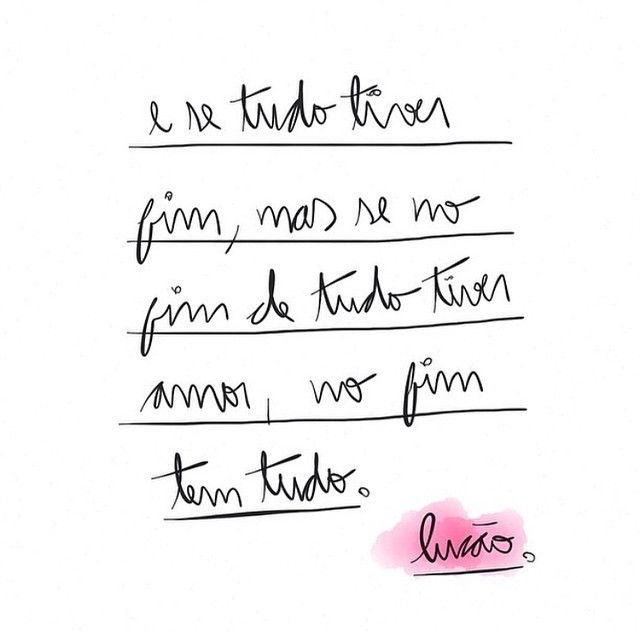 e se tudo tiver
fim, mas se no
fim de tudo tiver
amor, no fim
tem tudo.
luzão.